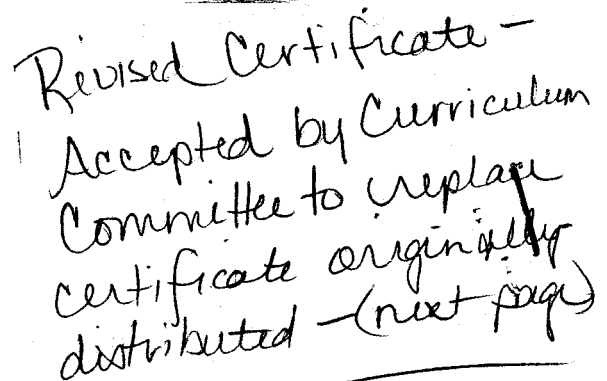 Revised Certificate –
Accepted by Curriculum
Committee to replace
certificate originally
distributed – (next page)